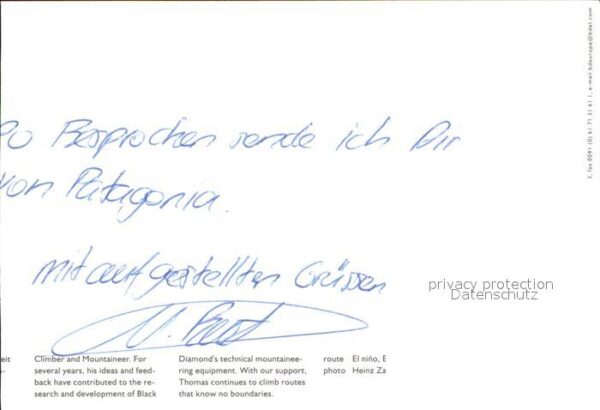 Besprochen sende ich Dir
von Patagonia.
mit aufgestellten Grüssen
privacy protection
Datenschutz
eit Climber and Mountaineer. For
several years, his ideas and feed-
back have contributed to the re-
search and development of Black
Diamond's technical mountainee-
ring equipment. With our support,
Thomas continues to climb routes
that know no boundaries.
route El niño, E
photo Heinz Za
2, fax 0041 (0) 61 71 31 61 1, e-mail bdeurope@bdel.com